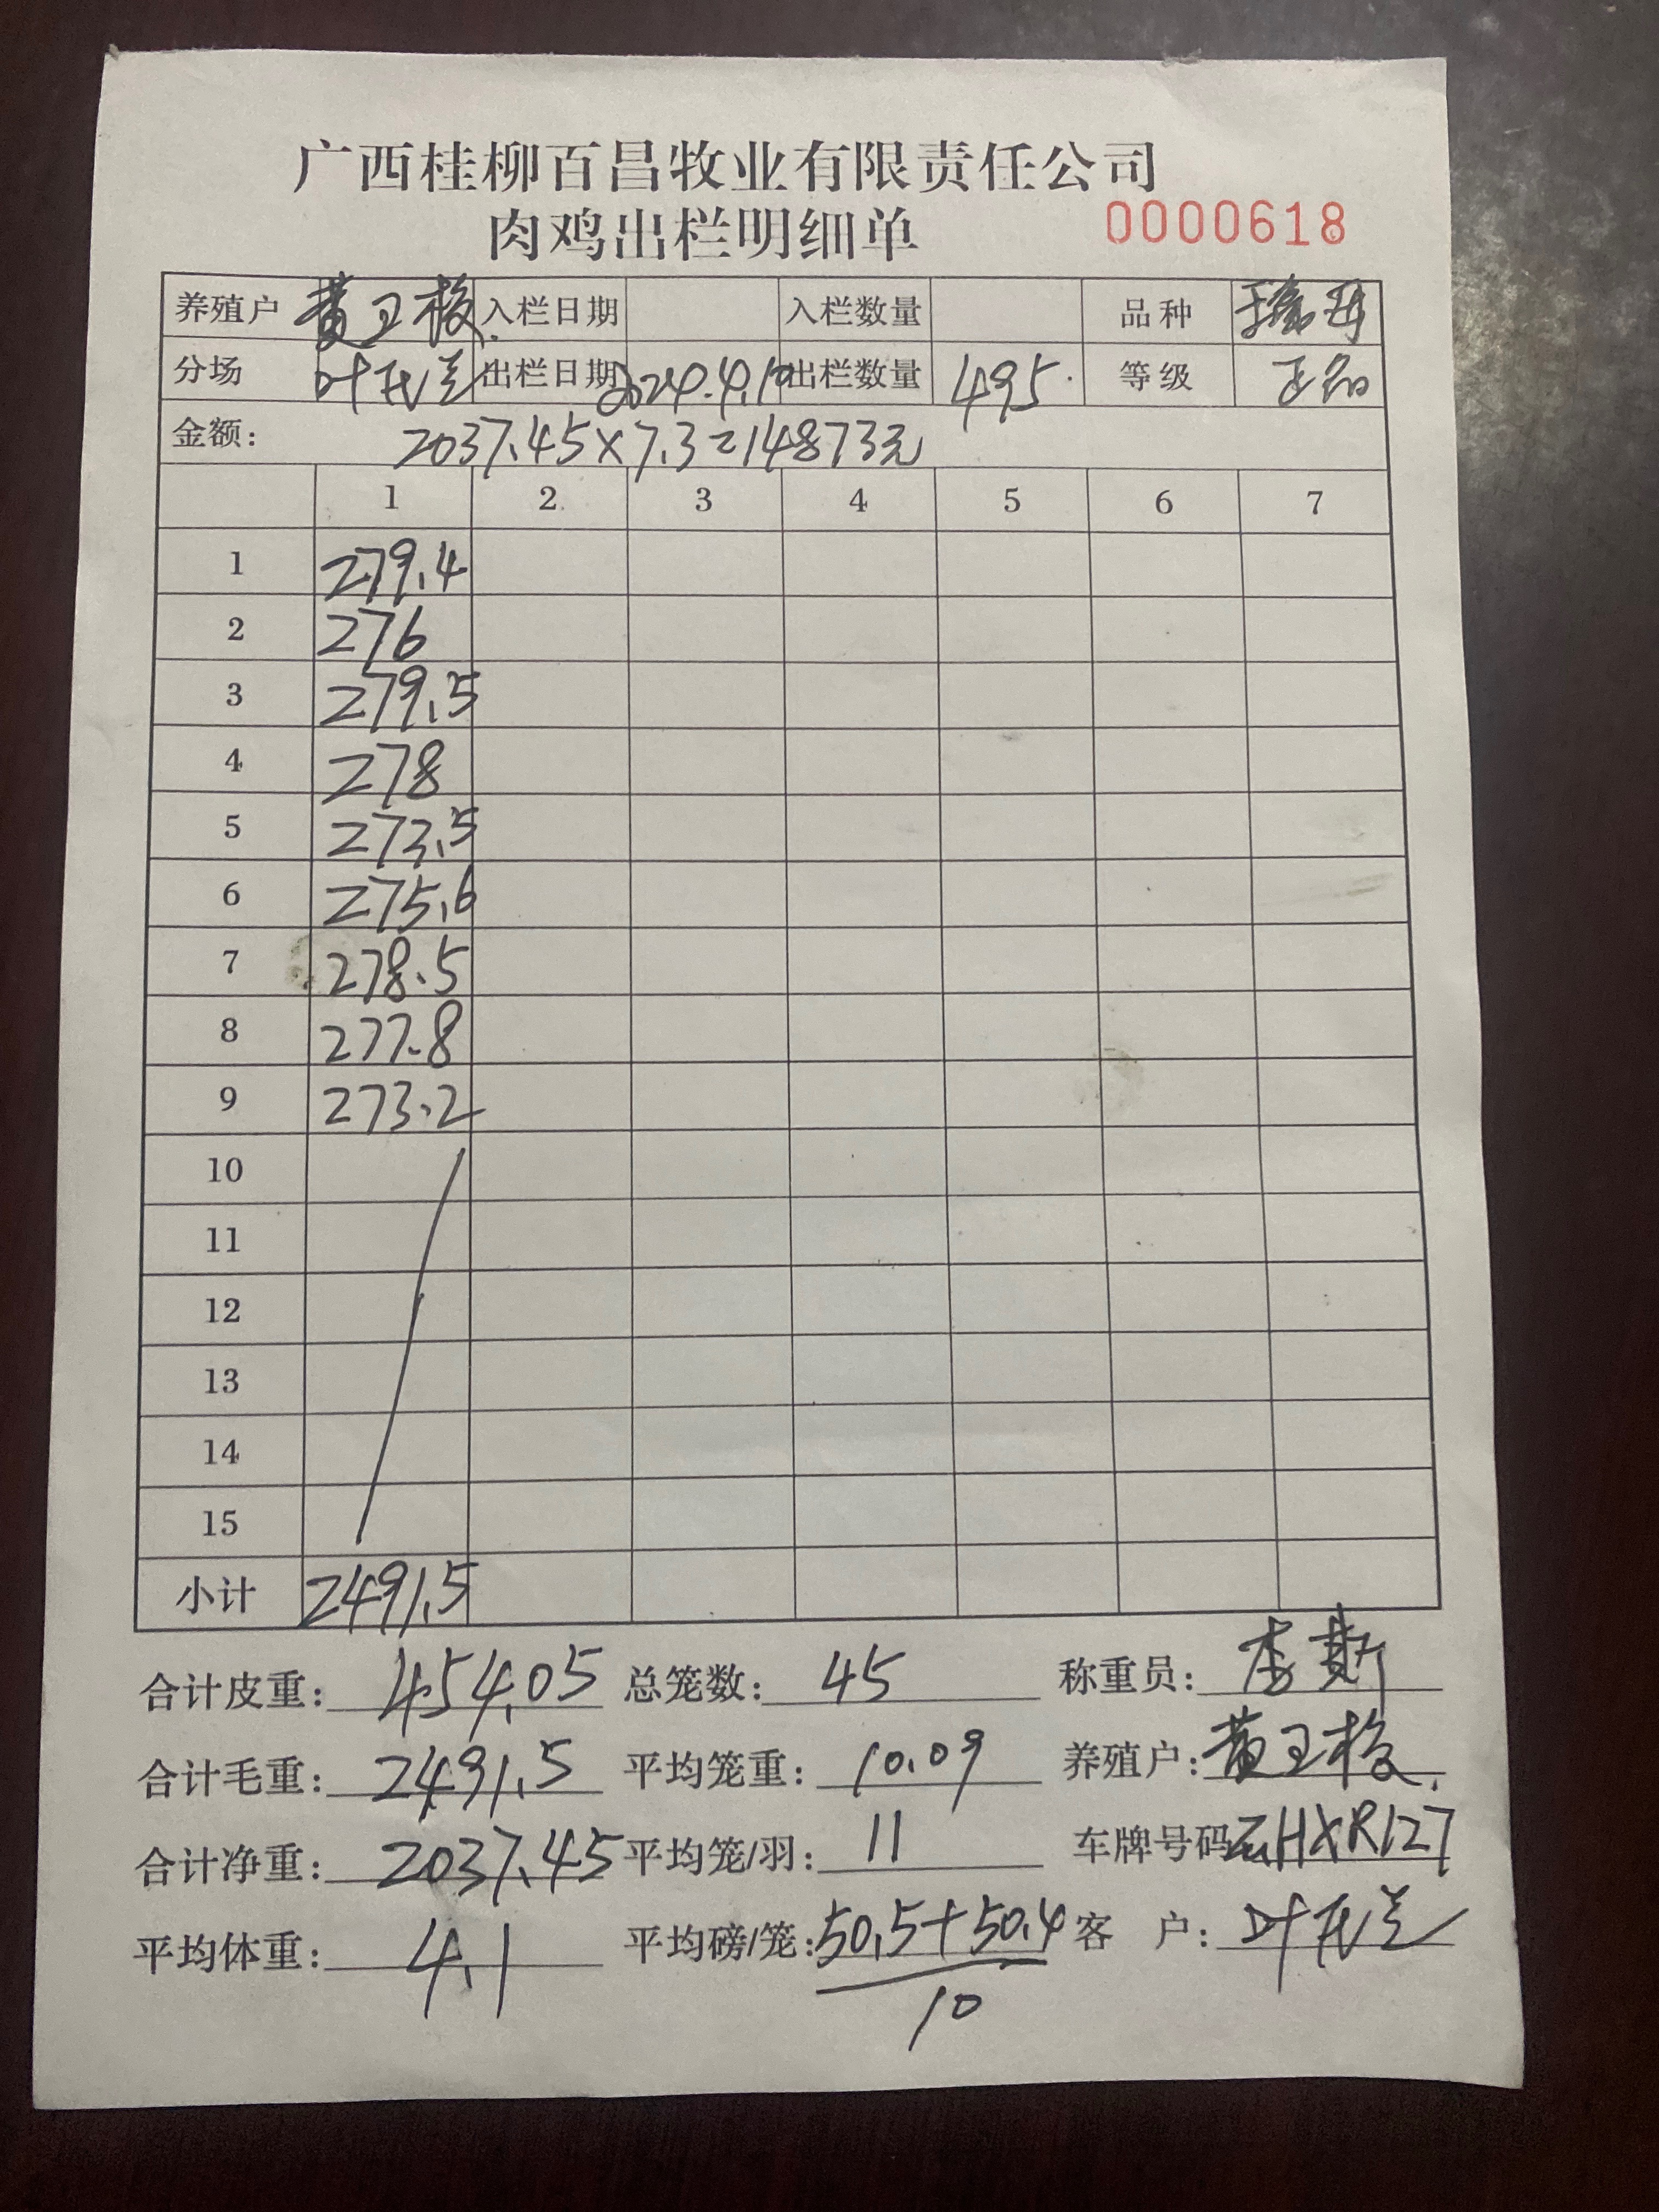 广西桂柳百昌牧业有限责任公司
肉鸡出栏明细单 0000618
养殖户 黄卫梅 入栏日期 入栏数量 品种
分场 出栏日期 2024.4.10 出栏数量 495 等级 正品
金额: 2037.45×7.3=14873元
1 2 3 4 5 6 7
1 279.4
2 276
3 279.5
4 278
5 273.5
6 275.6
7 278.5
8 277.8
9 273.2
10
11
12
13
14
15
小计 2491.5
合计皮重: 454.05 总笼数: 45 称重员:
合计毛重: 2491.5 平均笼重: 10.09 养殖户: 黄卫梅
合计净重: 2037.45 平均笼/羽: 11 车牌号码 云HXR127
平均体重: 4.1 平均磅/笼: 50.5+50.4 客户:
10